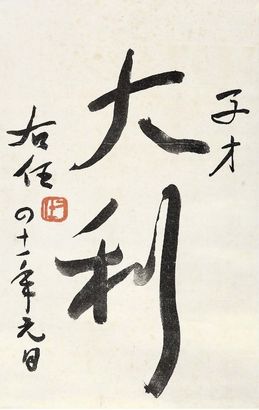 子才
大利
右任
四十一年元旦